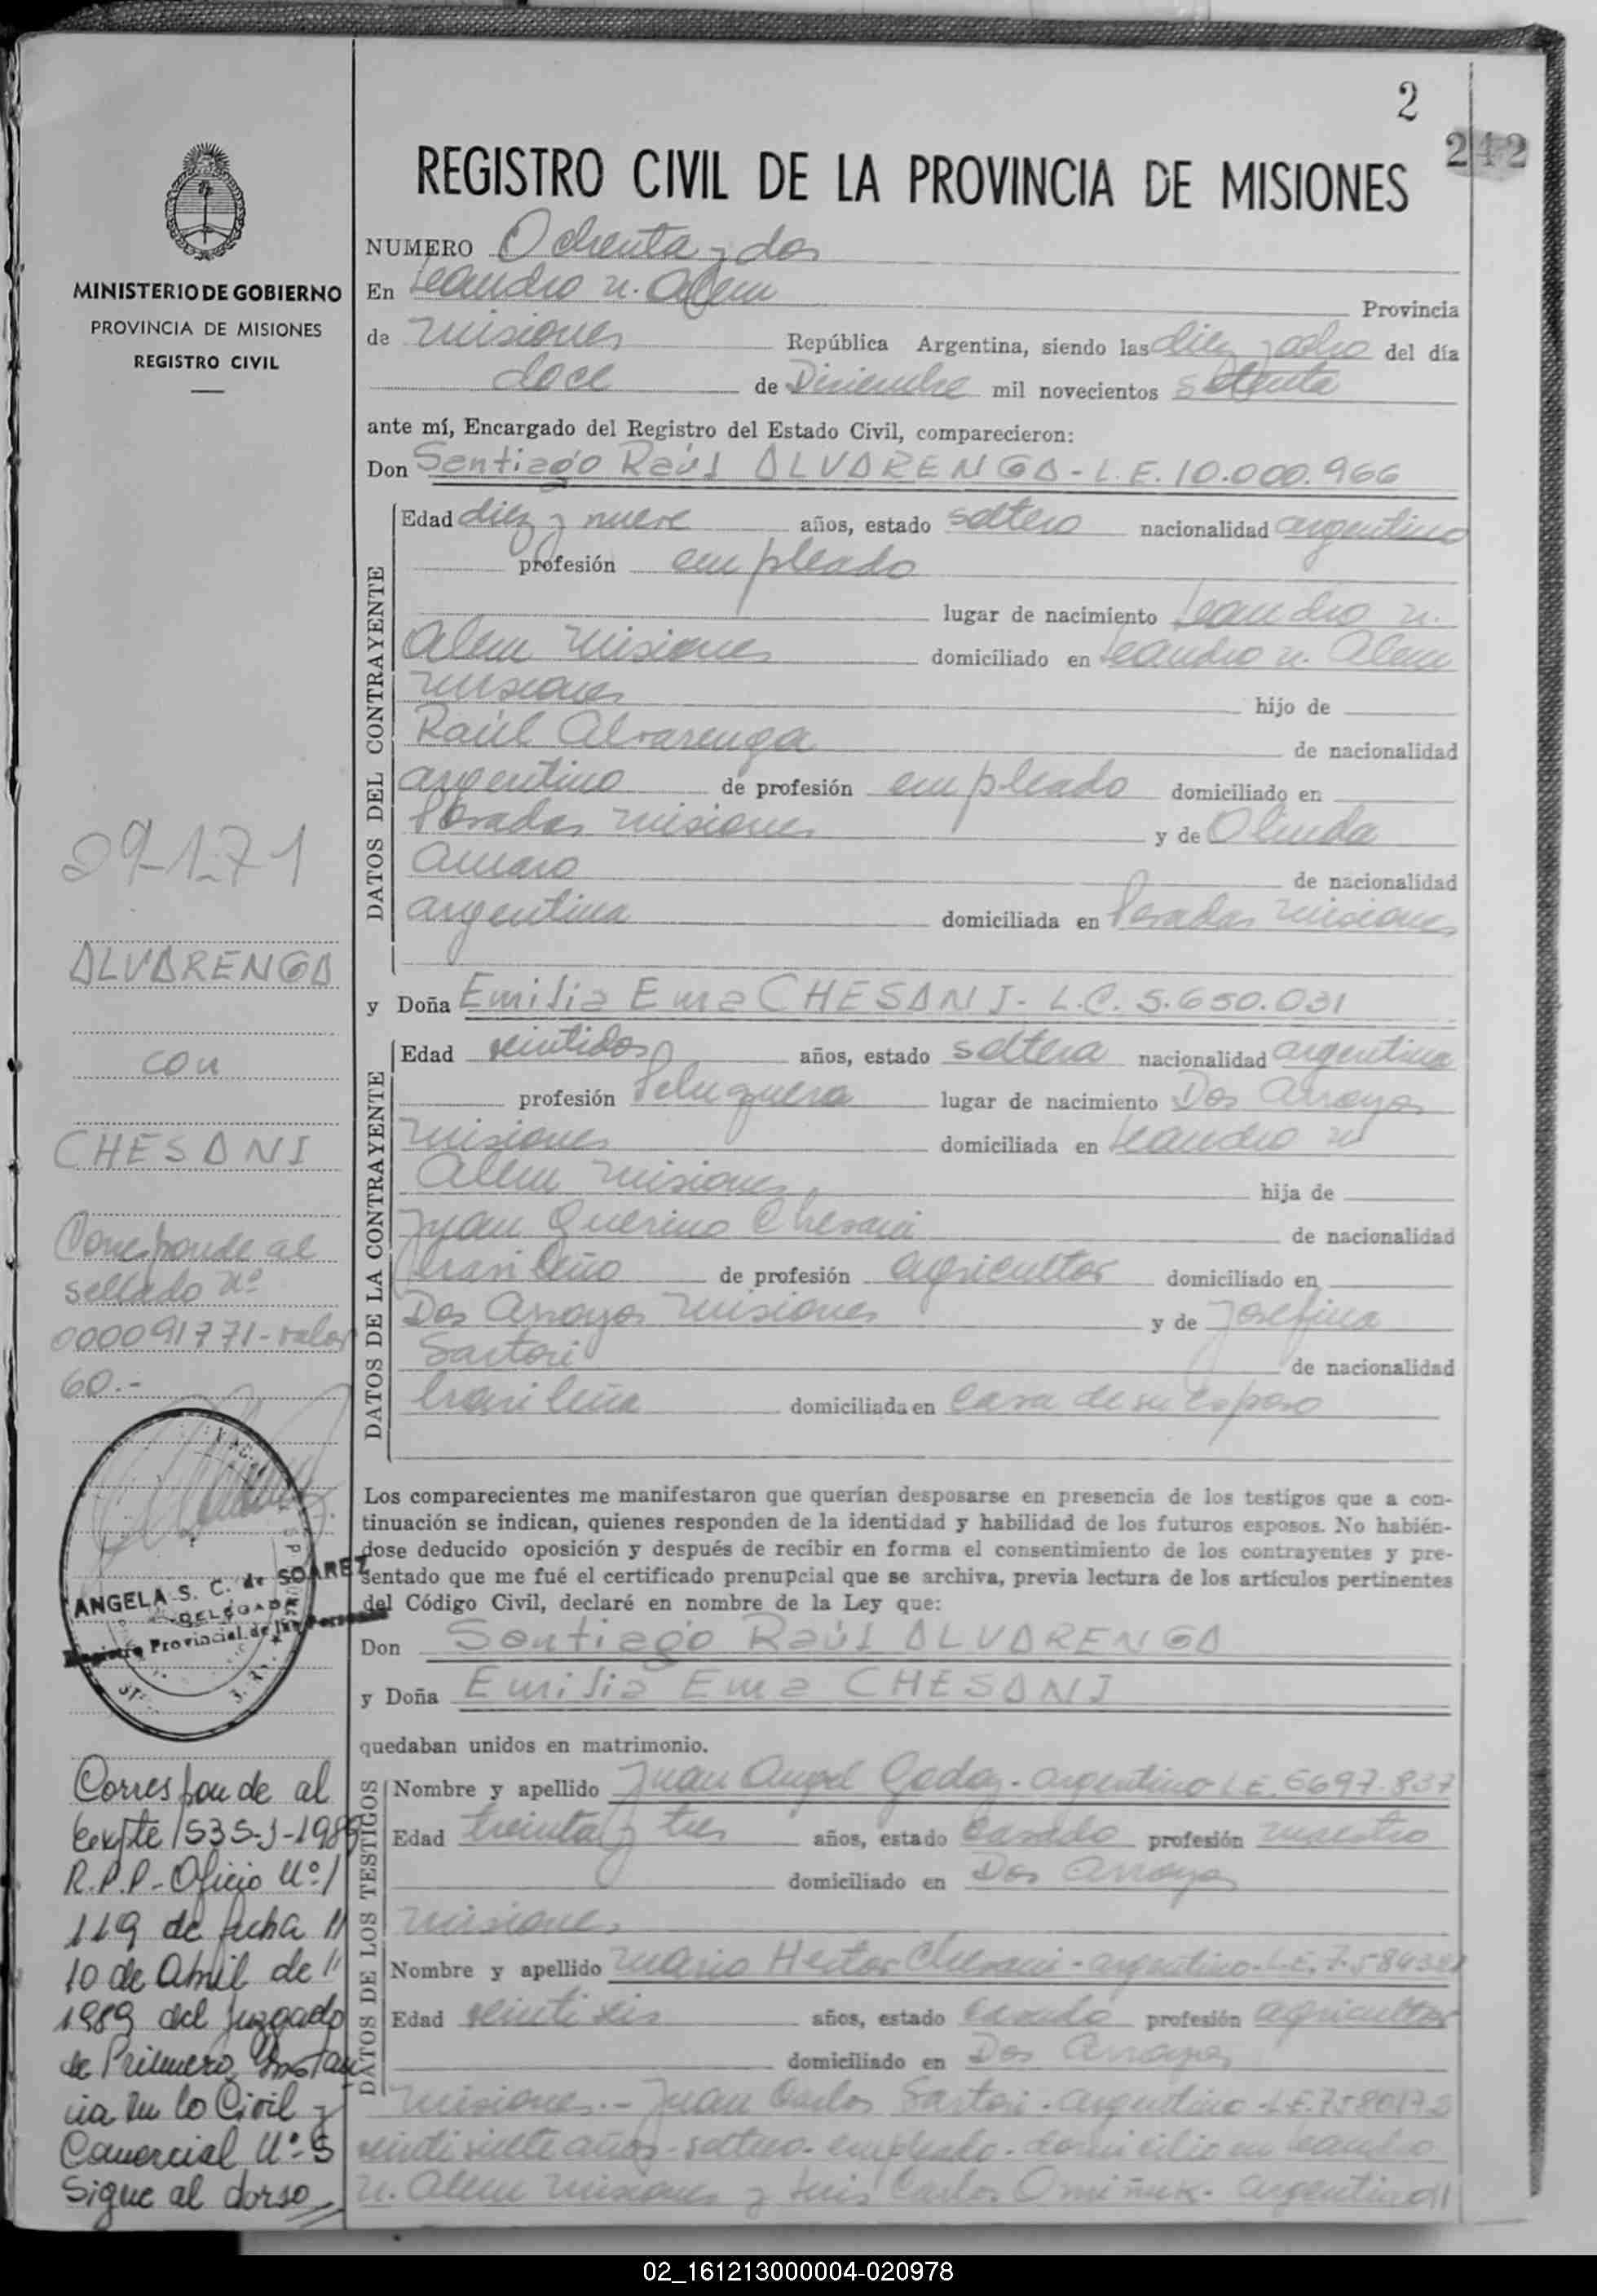 2
242
REGISTRO CIVIL DE LA PROVINCIA DE MISIONES
MINISTERIO DE GOBIERNO
PROVINCIA DE MISIONES
REGISTRO CIVIL
NUMERO Ochenta y dos
En Leandro N. Alem Provincia
de Misiones República Argentina, siendo las diez y ocho del día
doce de Diciembre mil novecientos setenta
ante mí, Encargado del Registro del Estado Civil, comparecieron:
Don Santiago Raúl ALVARENGA - L.E. 10.000.966
DATOS DEL CONTRAYENTE
Edad diez y nueve años, estado soltero nacionalidad argentino
profesión empleado
lugar de nacimiento Leandro N.
Alem Misiones domiciliado en Leandro N. Alem
Misiones hijo de
Raúl Alvarenga de nacionalidad
argentino de profesión empleado domiciliado en
Posadas Misiones y de Olinda
Amaro de nacionalidad
argentina domiciliada en Posadas Misiones
y Doña Emilia Ema CHESANI - L.C. 5.650.031
DATOS DE LA CONTRAYENTE
Edad veintidos años, estado soltera nacionalidad argentina
profesión Peluquera lugar de nacimiento Dos Arroyos
Misiones domiciliada en Leandro N
Alem Misiones hija de
Juan Querino Chesani de nacionalidad
brasileño de profesión agricultor domiciliado en
Dos Arroyos Misiones y de Josefina
Sartori de nacionalidad
brasileña domiciliada en casa de su esposo
Los comparecientes me manifestaron que querían desposarse en presencia de los testigos que a con-
tinuación se indican, quienes responden de la identidad y habilidad de los futuros esposos. No habién-
dose deducido oposición y después de recibir en forma el consentimiento de los contrayentes y pre-
sentado que me fué el certificado prenupcial que se archiva, previa lectura de los artículos pertinentes
del Código Civil, declaré en nombre de la Ley que:
Don Santiago Raúl ALVARENGA
y Doña Emilia Ema CHESANI
quedaban unidos en matrimonio.
DATOS DE LOS TESTIGOS
Nombre y apellido Juan Angel Godoy - argentino L.E. 5697.837
Edad treinta y tres años, estado casado profesión maestro
domiciliado en Dos Arroyos
Misiones
Nombre y apellido Mario Hector Chesani - argentino - L.E. 7.584321
Edad veintiseis años, estado casado profesión agricultor
domiciliado en Dos Arroyos
Misiones.- Juan Carlos Sartori - argentino - L.E. 7580172
veintisiete años - soltero - empleado - domicilio en Leandro
N. Alem Misiones y Luis Carlos - argentino
29-1-71
ALVARENGA
con
CHESANI
Corresponde al
sellado Nº
000091771 - valor
60.-
ANGELA S. C. de SOAREZ
DELEGADA
Registro Provincial de las Personas
Corresponde al
Expte 1535-J-1989
R.P.P - Oficio Nº /
119 de fecha //
10 de Abril de //
1989 del Juzgado
de Primera Instan
cia en lo Civil y
Comercial Nº 5
Sigue al dorso
02_161213000004-020978